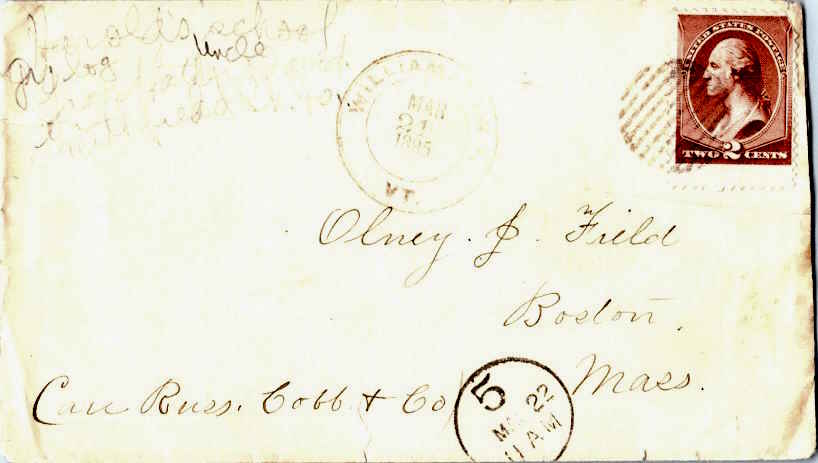 Harold's school
Uncle
WILLIAM
MAR
21
1885
VT.
UNITED STATES POSTAGE
TWO 2 CENTS
Olney. J. Field
Boston,
Mass.
Care Russ. Cobb & Co
5
MAR 22
11 AM